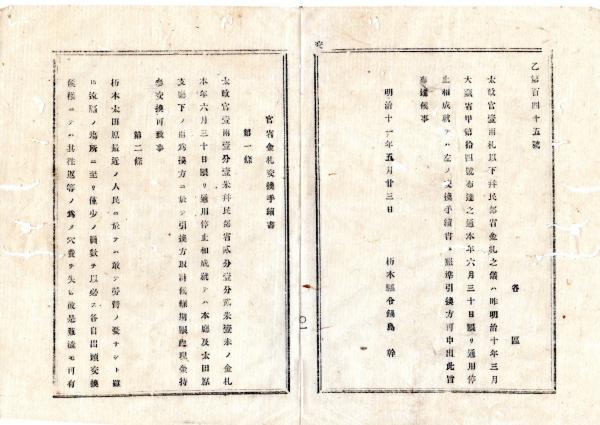 乙第百四十五號
各區
太政官壹兩札以下並民部省金札之儀ハ昨明治十年三月
大藏省甲第拾四號布達之通本年六月三十日限リ通用停
止相成就テハ左ノ交換手續書ニ照準引換方可申出此旨
布達候事
明治十一年五月廿三日
栃木縣令鍋島幹
官省金札交換手續書
第一條
太政官壹兩壹分壹朱並民部省貳分壹分貳朱壹朱ノ金札
本年六月三十日限リ通用停止相成就テハ本廳及太田原
支廳下ノ兩爲換方ニ於テ引換方取計候條期限迄現金持
參交換可致事
第二條
栃木太田原最近ノ人民ニ於テハ敢テ勞費ノ憂ナシト雖
モ遠隔ノ場所ニ至リ僅少ノ員數ヲ以必ス各自出頭交換
候樣ニテハ其往返等ノ爲メ冗費ヲ失ヒ彼是難澁モ可有